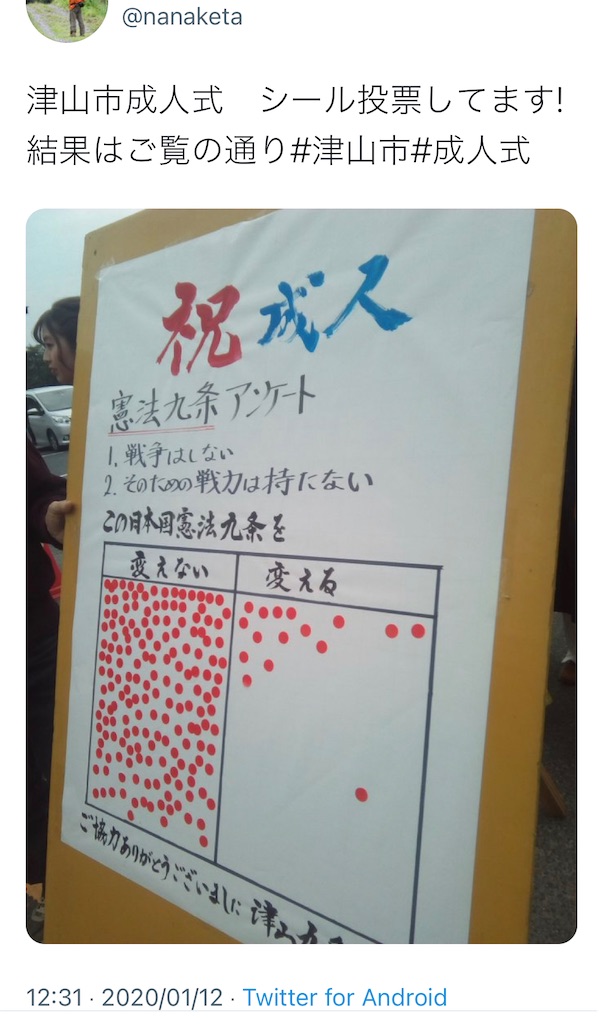 @nanaketa
津山市成人式　シール投票してます!
結果はご覧の通り#津山市#成人式
祝成人
憲法九条アンケート
1. 戦争はしない
2. そのための戦力は持たない
この日本国憲法九条を
変えない 変える
ご協力ありがとうございました 津山九
12:31 · 2020/01/12 · Twitter for Android